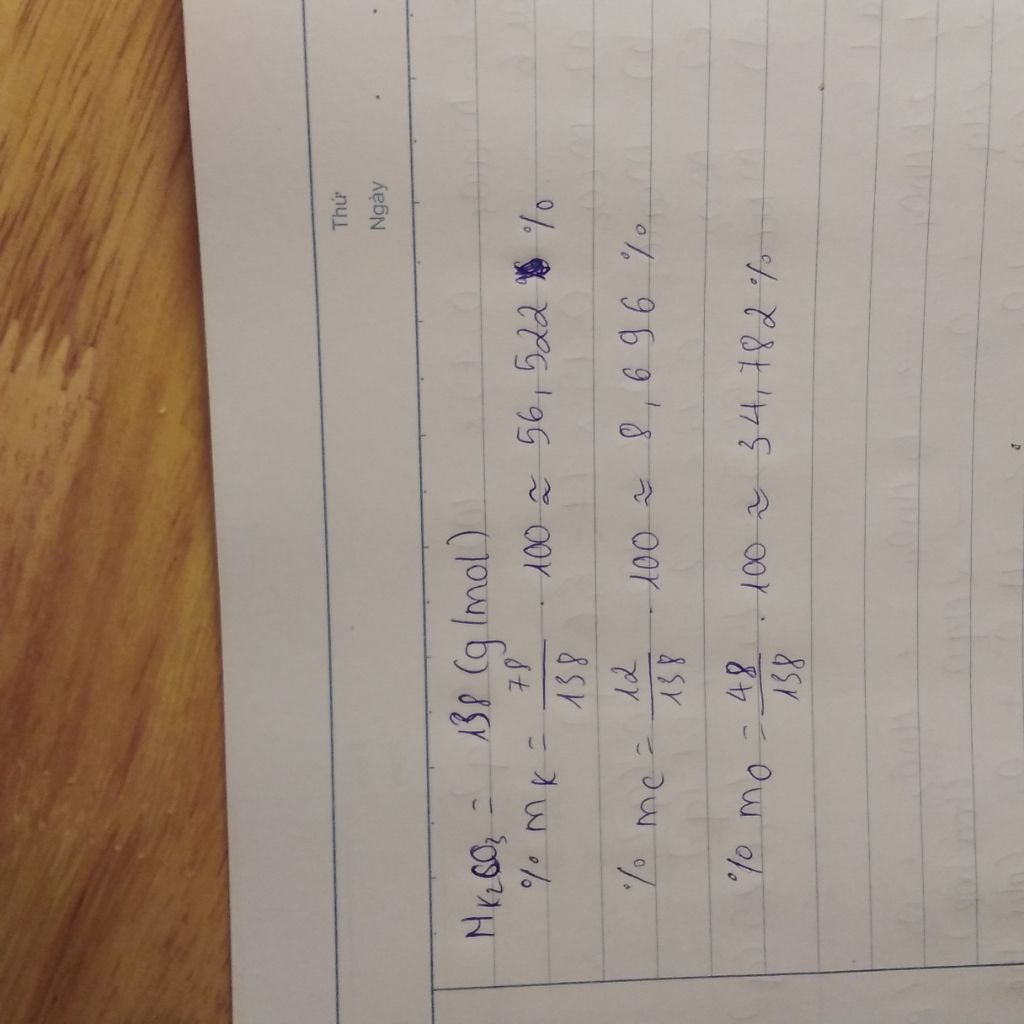 Thứ
Ngày
M K₂CO₃ = 138 (g/mol)
% m K = 78/138 . 100 ≈ 56,522 %
% m C = 12/138 . 100 ≈ 8,696 %
% m O = 48/138 . 100 ≈ 34,782 %